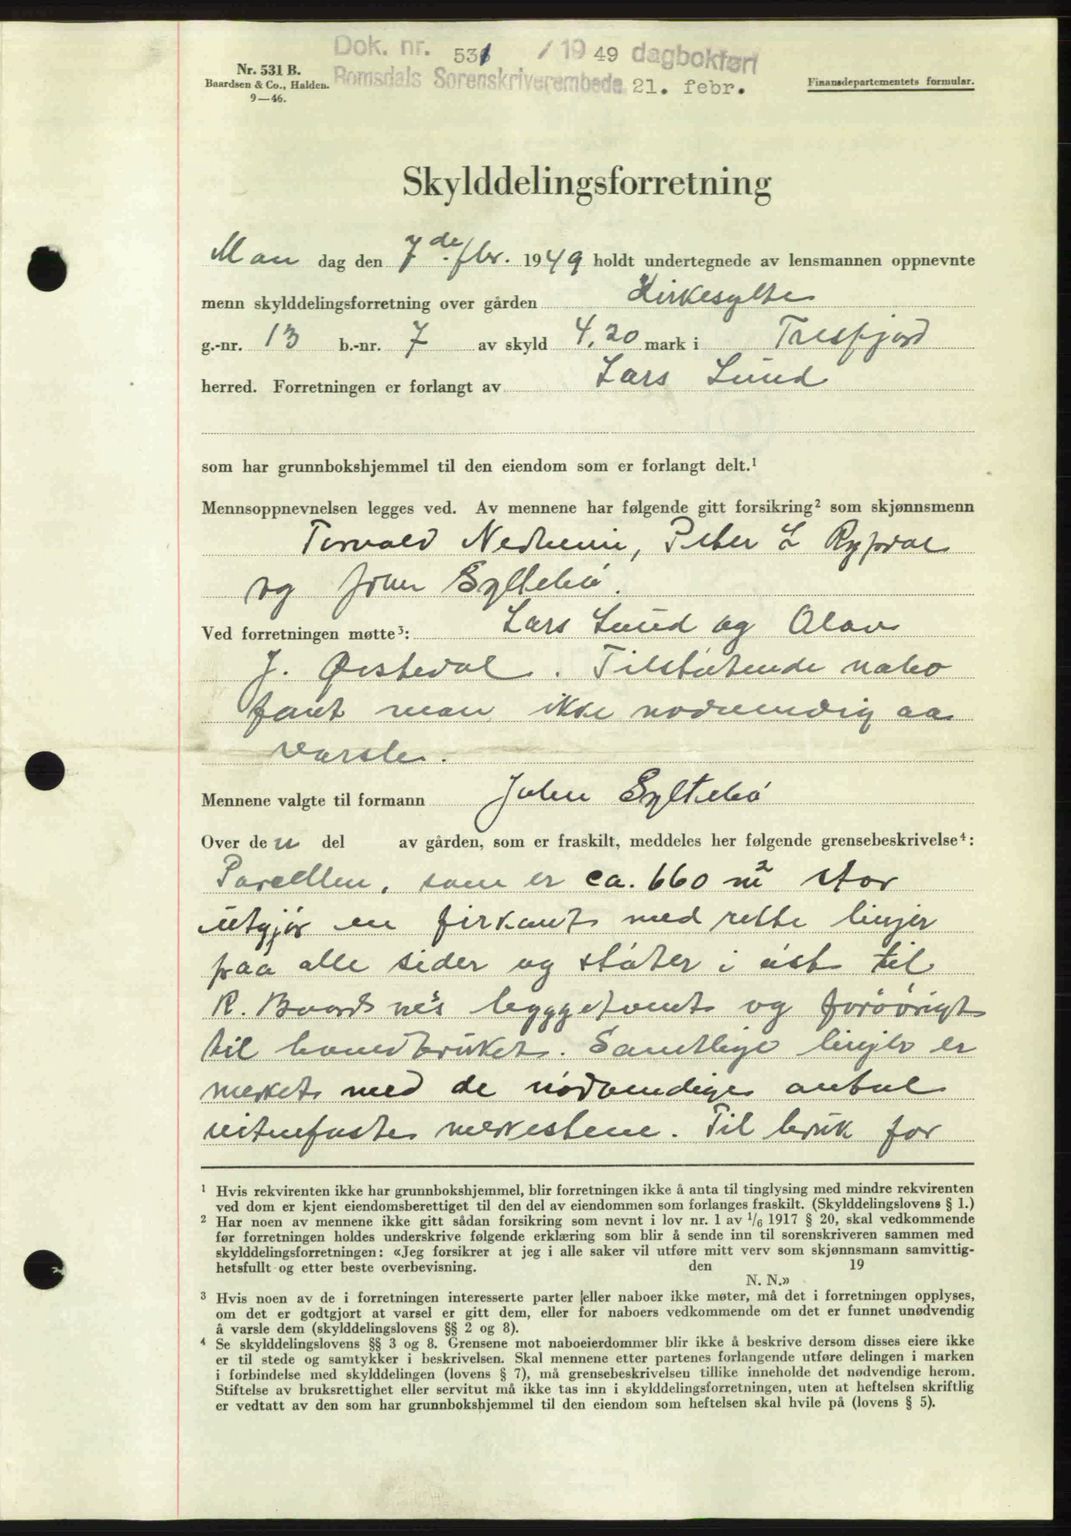 Dok. nr. 531 / 1949 dagbokført
Romsdals Sorenskriverembede 21. febr.
Nr. 531 B.
Baardsen & Co., Halden.
9—46.
Finansdepartementets formular.
Skylddelingsforretning
Man dag den 7de fbr. 1949 holdt undertegnede av lensmannen oppnevnte
menn skylddelingsforretning over gården Kirkesylte
g.-nr. 13 b.-nr. 7 av skyld 4,20 mark i Tresfjord
herred. Forretningen er forlangt av Lars Lund
som har grunnbokshjemmel til den eiendom som er forlangt delt.¹
Mennsoppnevnelsen legges ved. Av mennene har følgende gitt forsikring² som skjønnsmenn
Torvald Nerheim, Peter L Rypdal
og John Syltebö.
Ved forretningen møtte³: Lars Lund og Olav
J. Øvstedal. Tilstøtende nabo
fant man ikke nødvendig aa
varsle.
Mennene valgte til formann John Syltebö
Over den del av gården, som er fraskilt, meddeles her følgende grensebeskrivelse⁴:
Parcellen, som er ca. 660 m² stor
utgjør en firkant med rette linjer
paa alle sider og støter i öst til
R. byggetomt og forövrigt
til hovedbruket. Samtlige linjer er
merket med de nödvendige antal
vitnefaste merkestene. Til bruk for
¹ Hvis rekvirenten ikke har grunnbokshjemmel, blir forretningen ikke å anta til tinglysing med mindre rekvirenten
ved dom er kjent eiendomsberettiget til den del av eiendommen som forlanges fraskilt. (Skylddelingslovens § 1.)
² Har noen av mennene ikke gitt sådan forsikring som nevnt i lov nr. 1 av 1/6 1917 § 20, skal vedkommende
før forretningen holdes underskrive følgende erklæring som blir å sende inn til sorenskriveren sammen med
skylddelingsforretningen: «Jeg forsikrer at jeg i alle saker vil utføre mitt verv som skjønnsmann samvittig-
hetsfullt og etter beste overbevisning. den 19
N. N.»
³ Hvis noen av de i forretningen interesserte parter eller naboer ikke møter, må det i forretningen opplyses,
om det er godtgjort at varsel er gitt dem, eller for naboers vedkommende om det er funnet unødvendig
å varsle dem (skylddelingslovens §§ 2 og 8).
⁴ Se skylddelingslovens §§ 3 og 8. Grensene mot naboeierdommer blir ikke å beskrive dersom disses eiere ikke
er til stede og samtykker i beskrivelsen. Skal mennene etter partenes forlangende utføre delingen i marken
i forbindelse med skylddelingen (lovens § 7), må grensebeskrivelsen tillike inneholde det nødvendige herom.
Stiftelse av bruksrettighet eller servitut må ikke tas inn i skylddelingsforretningen, uten at heftelsen skriftlig
er vedtatt av den som har grunnbokshjemmel til den eiendom som heftelsen skal hvile på (lovens § 5).